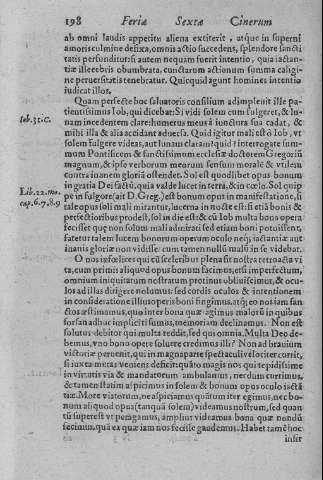 198 Feriæ Sextæ Cinerum
ab omni laudis appetitu aliena extiterit, atque in superni
amoris culmine defixa, omnis actio succedens, splendore sancti
tatis perfunditur: si autem nequam fuerit intentio, quia iactan-
tiæ illecebris obumbrata, cunctarum actionum summa caligi
ne peruersitatis tenebratur. Quicquid agunt homines intentio
iudicat illos.
Quam perfecte hoc saluatoris consilium adimplenit ille pa-
Iob. 31. C. tientissimus Iob, qui dicebat: Si vidi solem cum fulgeret, & lu-
nam incedentem clare: humerus meus à iunctura sua cadat, &
mihi illa & alia accidant aduersa. Quid igitur mali est ô Iob, vt
solem fulgere videas, aut lunam claram? quid? interrogate sum-
mum Pontificem & sanctissimum ecclesiæ doctorem Gregoriũ
magnum, & ipse verborum meorum sensum morale & vtilem
contra inanem gloriã ostendet. Sol est quodlibet opus bonum
in gratia Dei factũ, quia valde lucet in terra, & in cœlo. Sol quip
Lib. 22. mo. pe in fulgore (ait D. Greg.) est bonum opus in manifestatione, si
cap. 6. 7. 8. 9 tale opus soli mali mirantur, lucerna in nocte est: si etiã bonis &
perfectioribus prodest, sol in die est: & cũ Iob multa bona opera
fecisset quę non solum mali admirari sed etiam boni potuissent,
fatetur talem suorum bonorum operum oculo neq; iactantiæ aut
inanis gloriæ non vidisse: cum tamen nullũ malũ in se videbat.
O nos infœlices qui cũ sceleribus plena sit nostra retroacta vi
ta, cum primis aliquod opus bonum facimus, etsi imperfectum,
omnium iniquitatum nostrarum protinus obliuiscimur, & ocu-
los ad illas dirigere nolumus: sed cordis oculos & intentionem
in consideratione illius operis boni figimus, atq; eo nos iam san-
ctos æstimamus, quo inter bona quæ agimus malorũ in quibus
forsan adhuc impliciti sumus, memoriam declinamus. Non est
solutus debitor qui multa reddit, sed qui omnia. Multa Deo de-
bemus, vno bono opere soluere credimus illi? Non ad brauium
victoriæ peruenit, qui in magna parte spectaculi velociter currit,
si iuxta metas veniens deficit: quãto magis nos qui tepidissime
in virtutis via & mandatorum ambulamus, nedum currimus,
& tamen statim aspicimus in solem & bonum opus oculo iactã
tiæ. More viatorum, ne aspiciamus quãtum iter egimus, nec bo-
num aliquod opus (tanquã solem) videamus nostrum, sed quan
tũ superest vt peragamus, amplius videamus bona quæ nondũ
fecimus, quã ex quæ iam nos fecisse gaudemus. Habet tamẽ hoc
insit